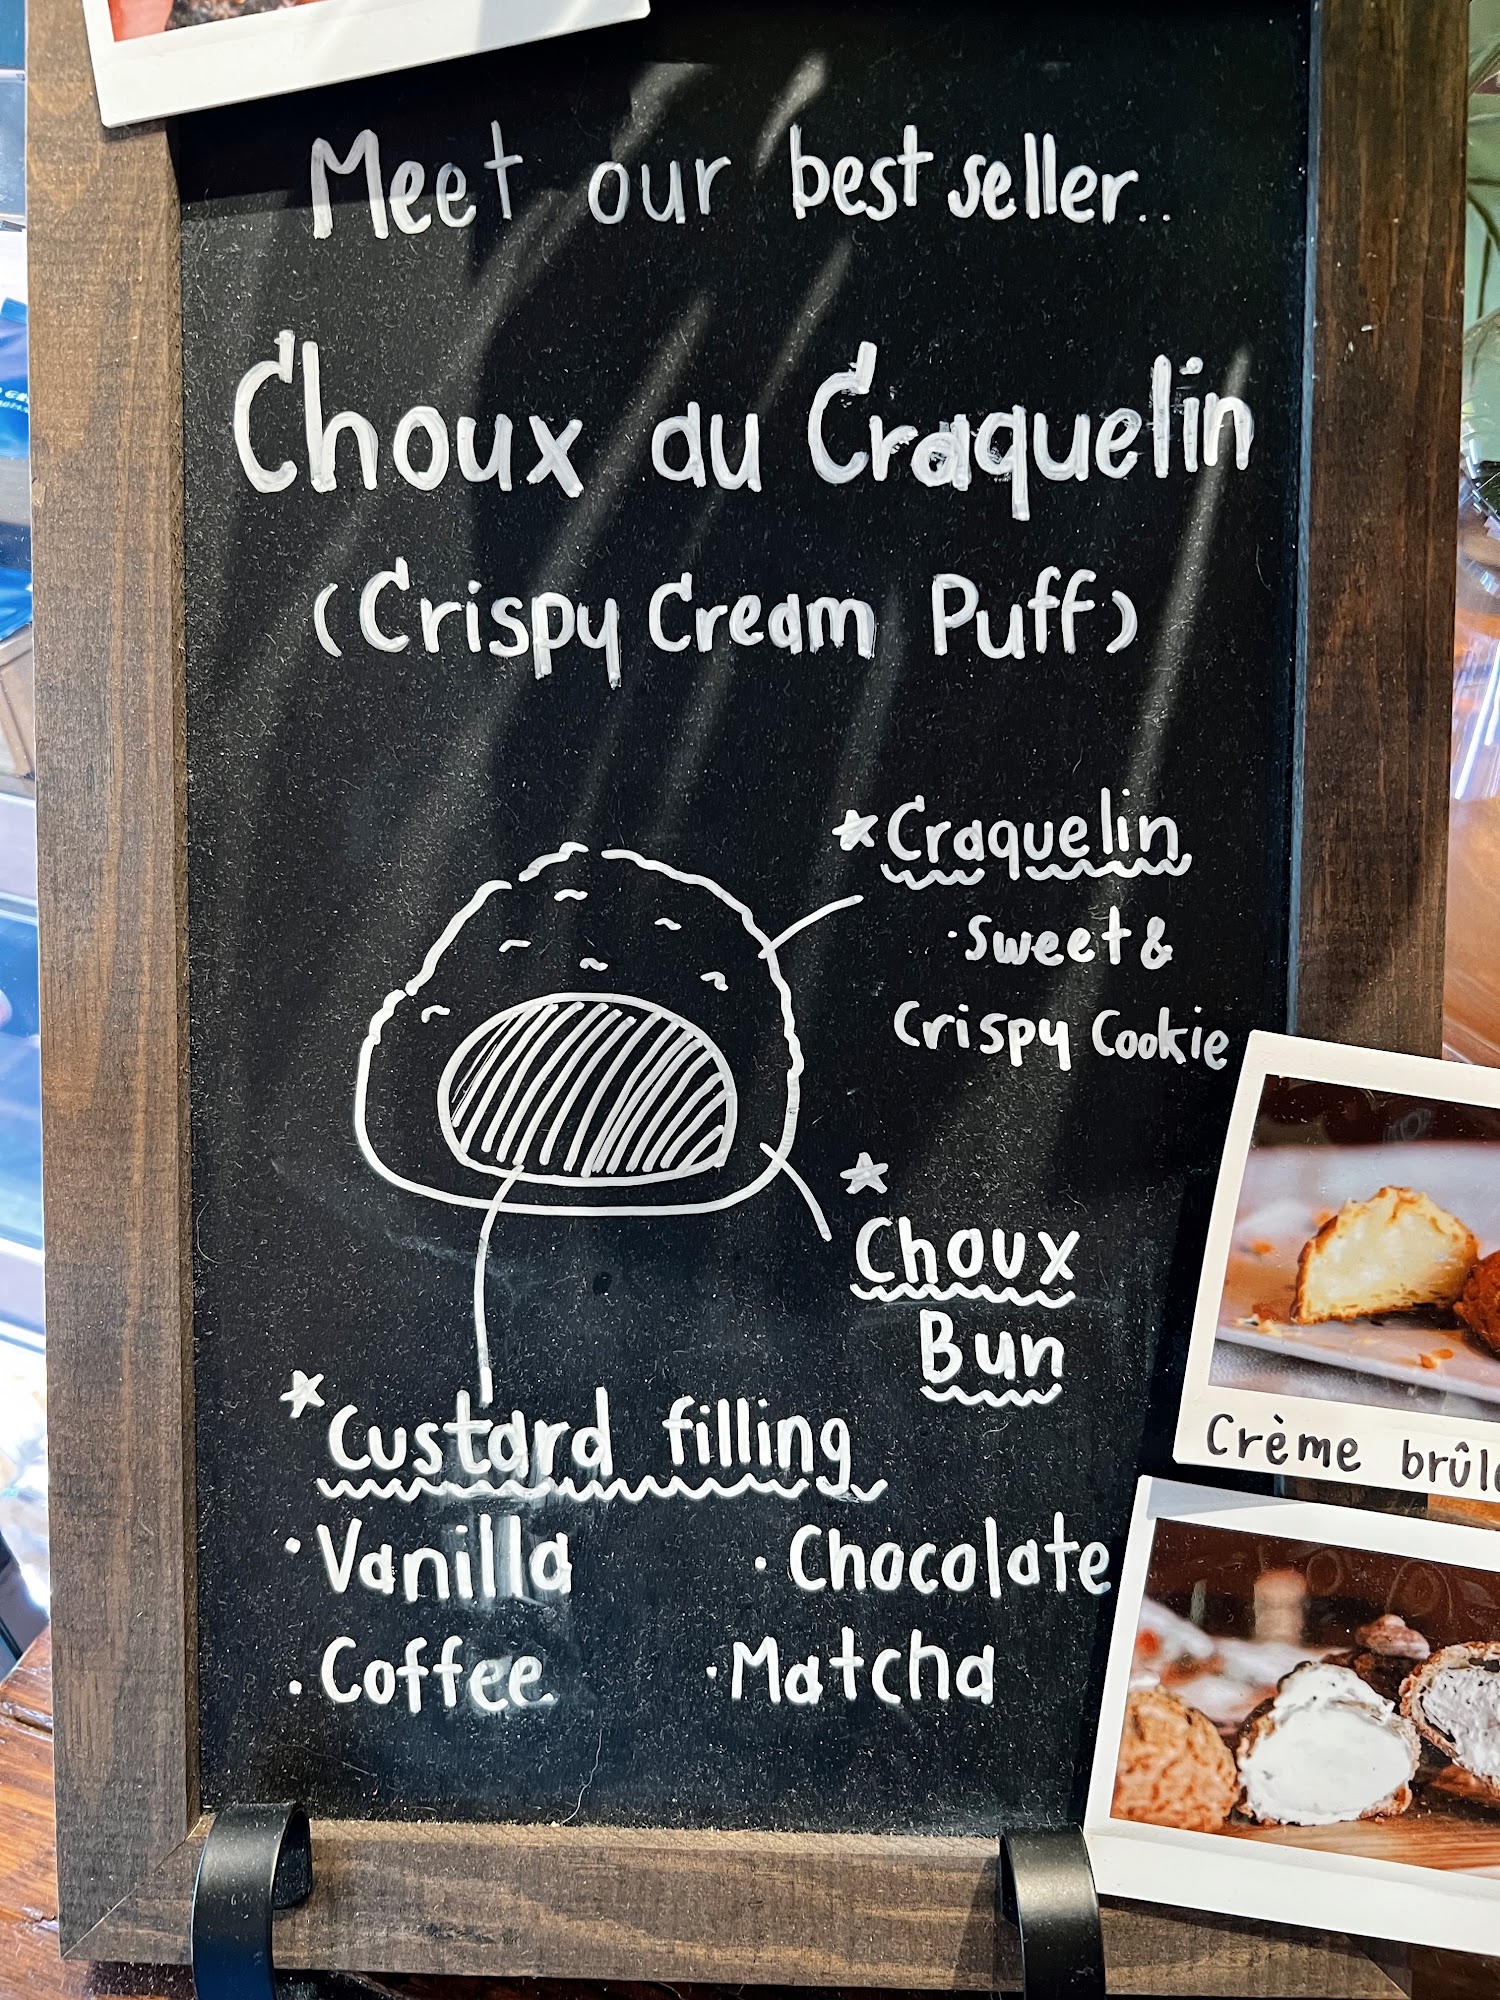 Meet our best seller..
Choux au Craquelin
(Crispy Cream Puff)
★Craquelin
·Sweet &
Crispy Cookie
★
Choux
Bun
★Custard filling
·Vanilla
·Chocolate
·Coffee
·Matcha
Crème